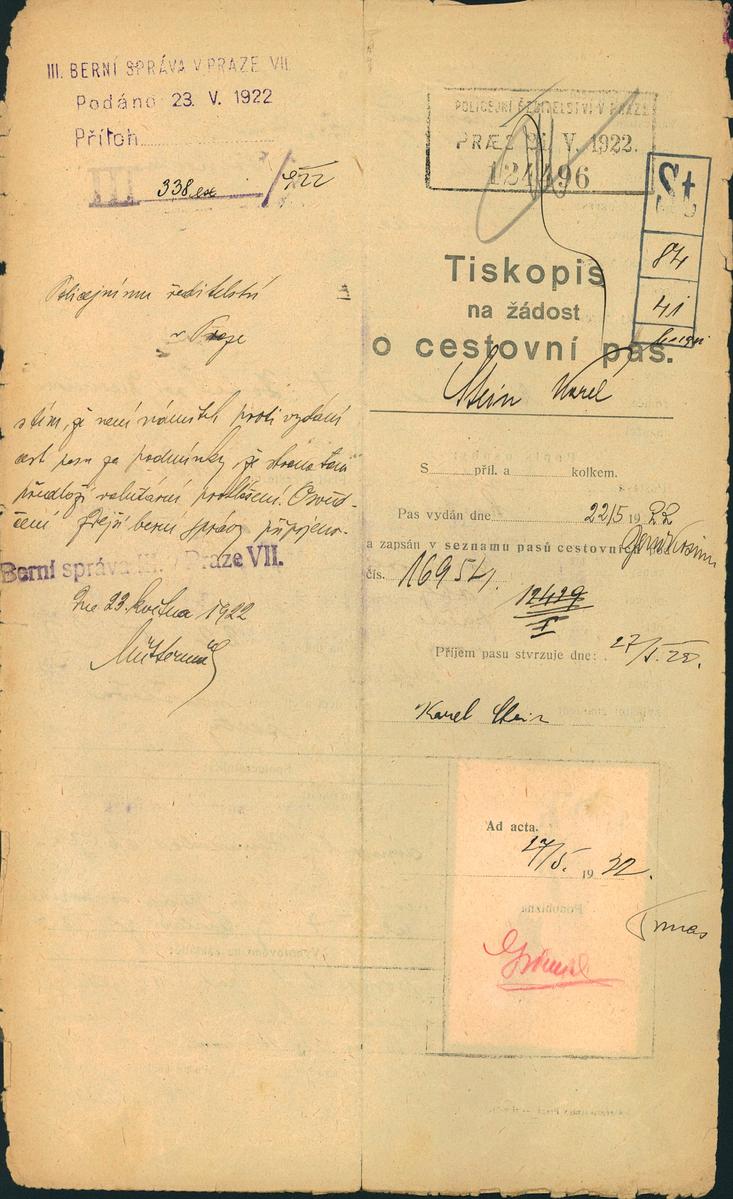 III. BERNÍ SPRÁVA V PRAZE VII.
Podáno 23. V. 1922
Příloh
III 338 /922
Policejnímu ředitelství
v Praze
s tím, že není námitek proti vydání
cest. pasu za podmínky, že strana tam
předloží valutární prohlášení. Osvěd-
čení zdejší berní správy připojeno.
Berní správa III. Praze VII.
Dne 23. května 1922
POLICEJNÍ ŘEDITELSTVÍ V PRAZE
PRAES V. 1922.
124496
St
84
41
Tiskopis
na žádost
o cestovní pas.
Stein Karel
S příl. a kolkem.
Pas vydán dne 22/5 1922
a zapsán v seznamu pasů cestovních
čís. 16954.
12429
I
Příjem pasu stvrzuje dne: 27/5. 22.
Karel Stein
Ad acta.
27/5. 1922.
Podobizna